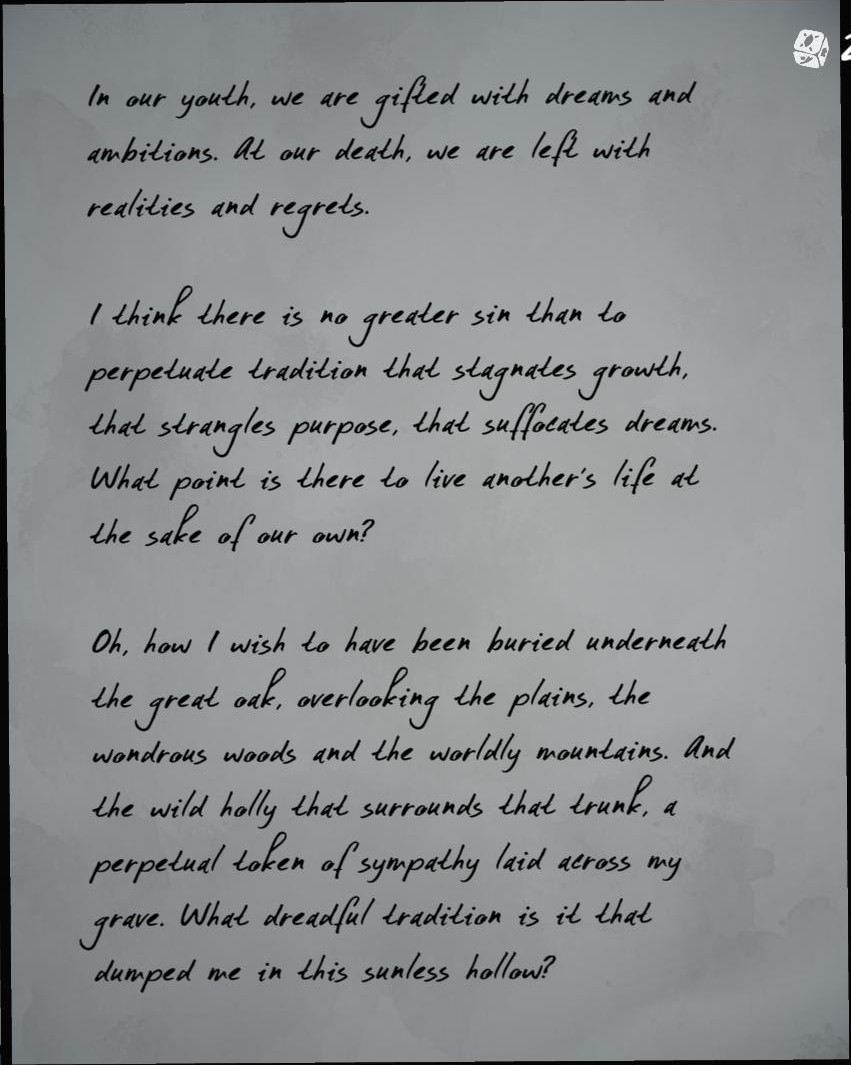 In our youth, we are gifted with dreams and
ambitions. At our death, we are left with
realities and regrets.
I think there is no greater sin than to
perpetuate tradition that stagnates growth,
that strangles purpose, that suffocates dreams.
What point is there to live another's life at
the sake of our own?
Oh, how I wish to have been buried underneath
the great oak, overlooking the plains, the
wondrous woods and the worldly mountains. And
the wild holly that surrounds that trunk, a
perpetual token of sympathy laid across my
grave. What dreadful tradition is it that
dumped me in this sunless hollow?